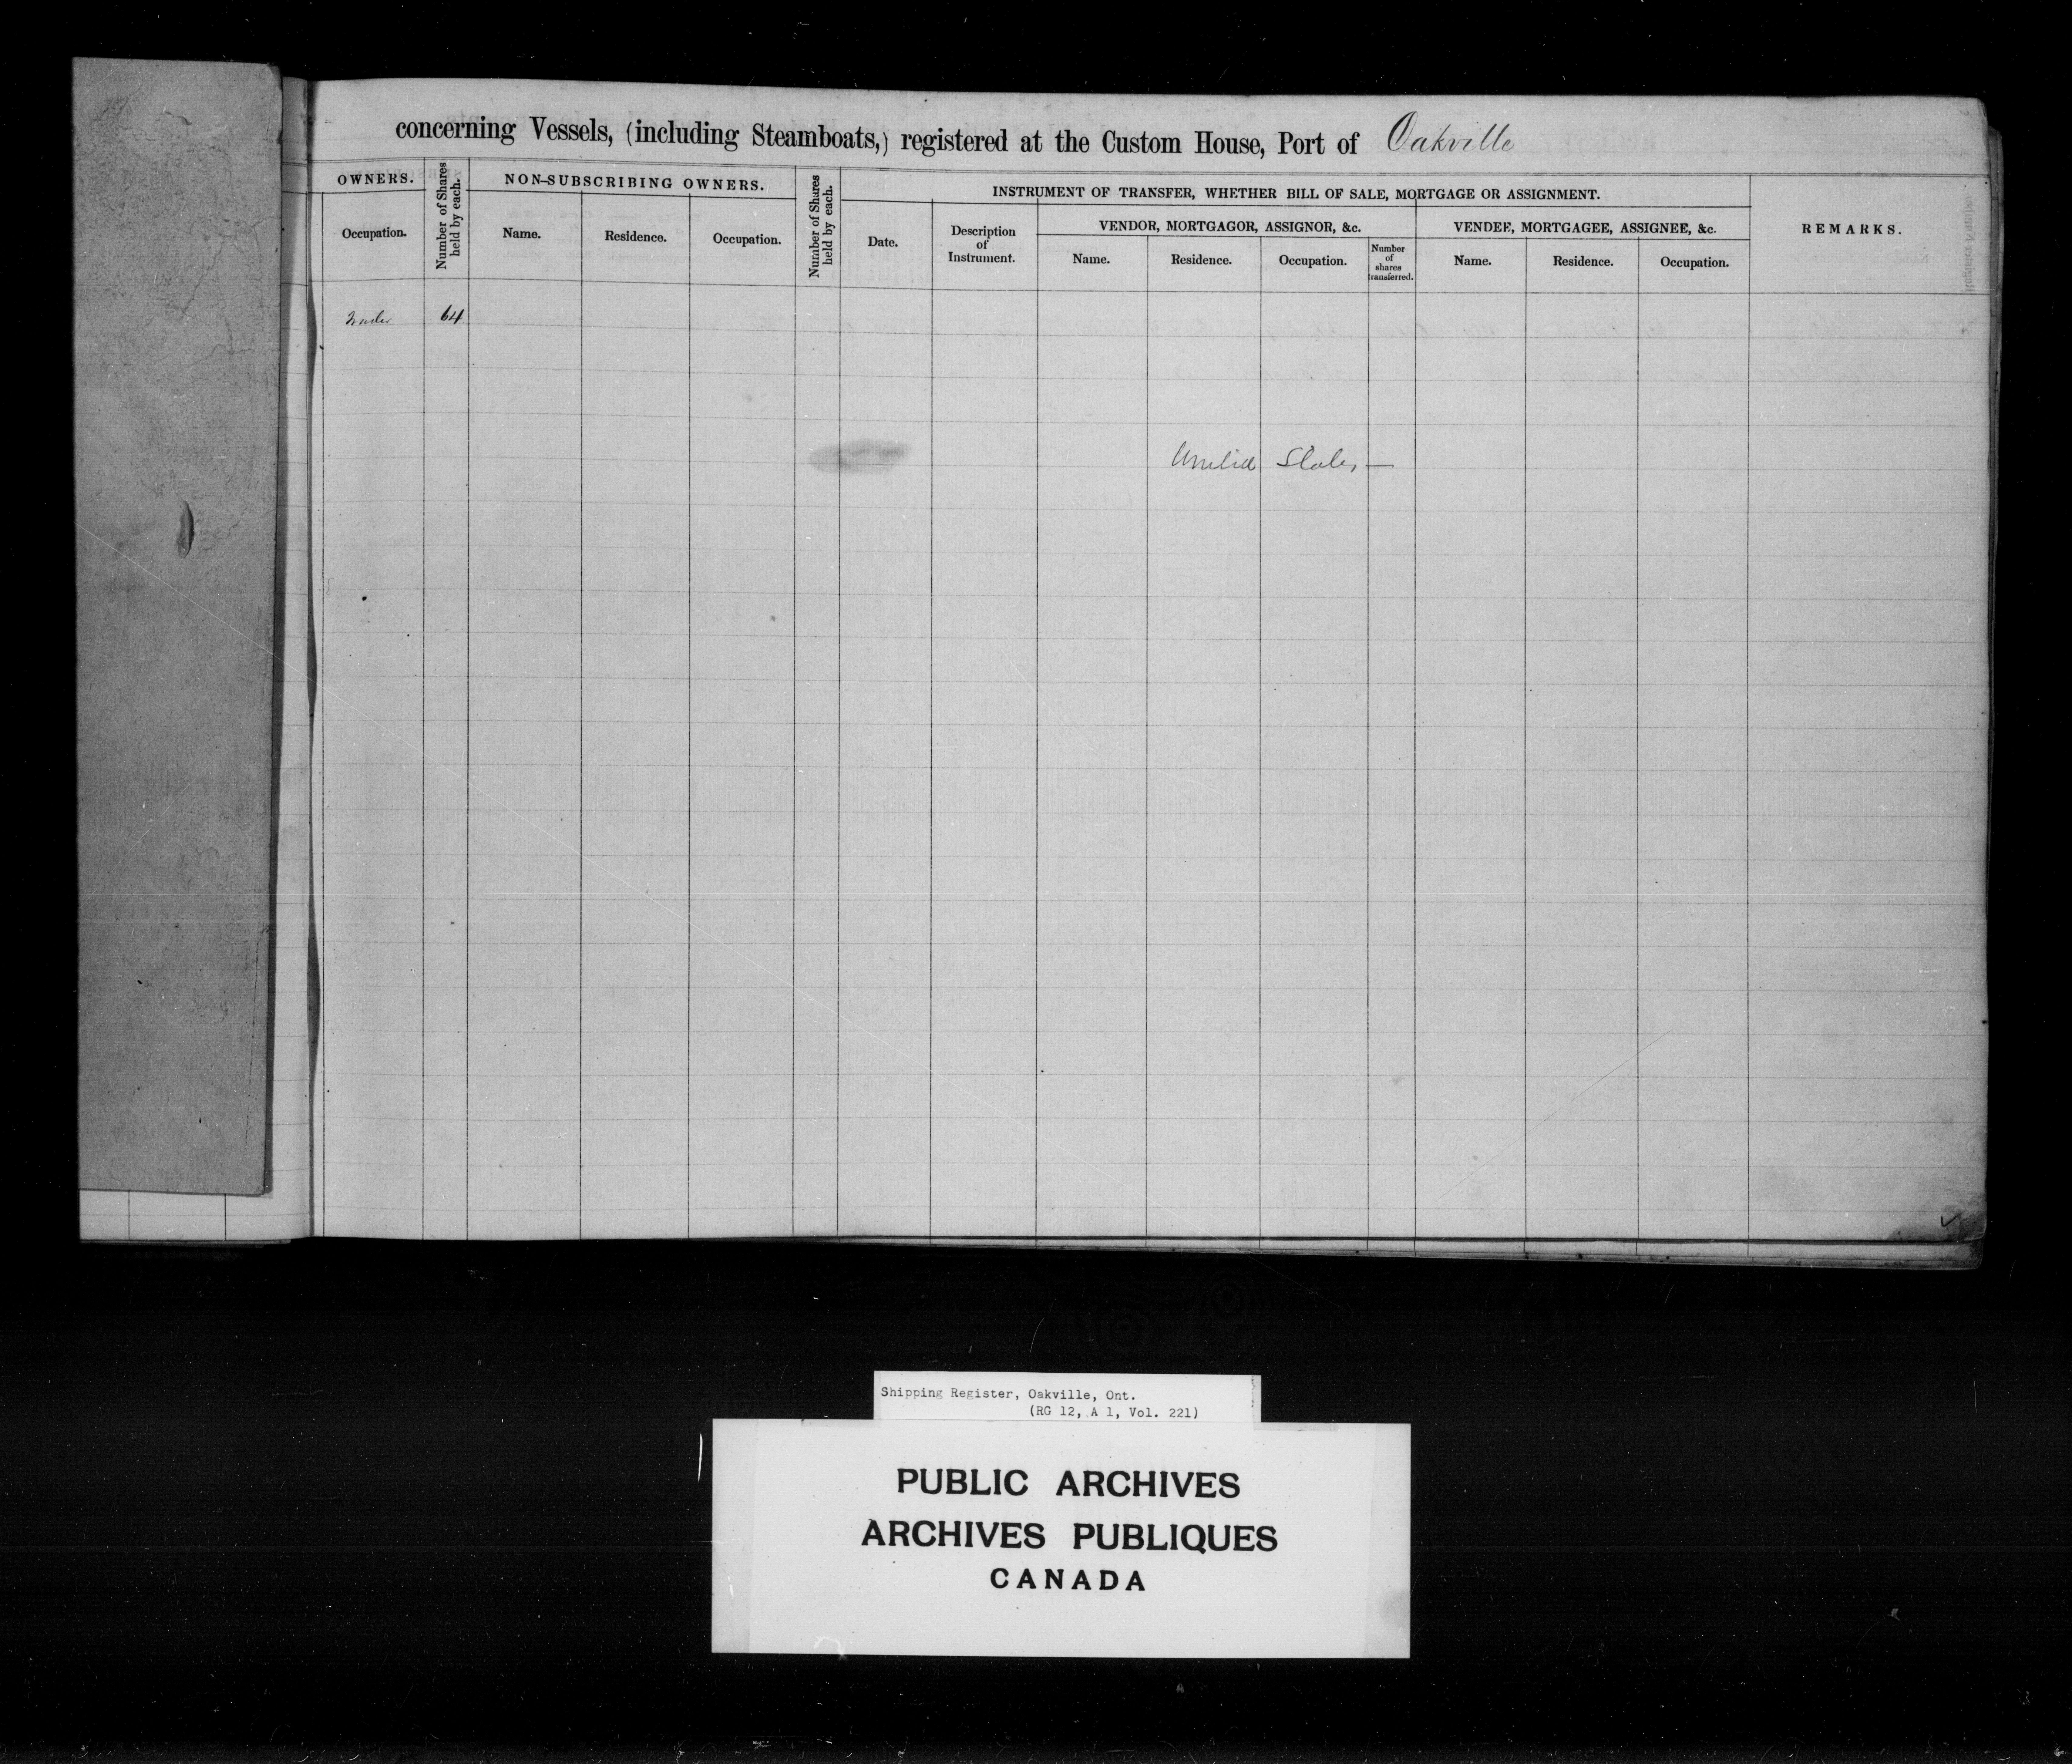 concerning Vessels, (including Steamboats,) registered at the Custom House, Port of Oakville
OWNERS.
Number of Shares held by each.
NON-SUBSCRIBING OWNERS.
Number of Shares held by each.
INSTRUMENT OF TRANSFER, WHETHER BILL OF SALE, MORTGAGE OR ASSIGNMENT.
REMARKS.
VENDOR, MORTGAGOR, ASSIGNOR, &c.
VENDEE, MORTGAGEE, ASSIGNEE, &c.
Occupation.
Name.
Residence.
Occupation.
Date.
Description
of
Instrument.
Name.
Residence.
Occupation.
Number
of
shares
transferred.
Name.
Residence.
Occupation.
64
United States —
Shipping Register, Oakville, Ont.
(RG 12, A 1, Vol. 221)
PUBLIC ARCHIVES
ARCHIVES PUBLIQUES
CANADA